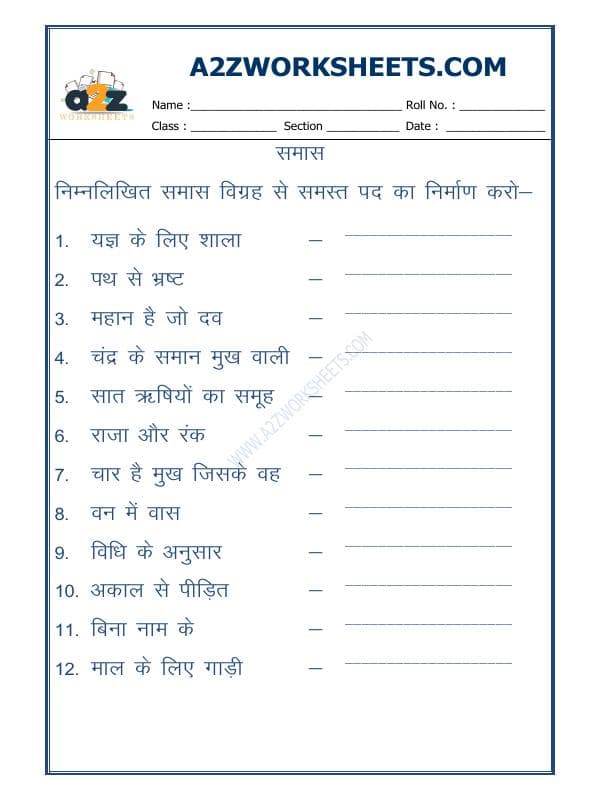 A2ZWORKSHEETS.COM
a2z
WORKSHEETS
Name :______________________________ Roll No. : ____________
Class : ____________ Section __________ Date : ______________
समास
निम्नलिखित समास विग्रह से समस्त पद का निर्माण करो–
1. यज्ञ के लिए शाला – ____________________
2. पथ से भ्रष्ट – ____________________
3. महान है जो दव – ____________________
4. चंद्र के समान मुख वाली – ____________________
5. सात ऋषियों का समूह – ____________________
6. राजा और रंक – ____________________
7. चार है मुख जिसके वह – ____________________
8. वन में वास – ____________________
9. विधि के अनुसार – ____________________
10. अकाल से पीड़ित – ____________________
11. बिना नाम के – ____________________
12. माल के लिए गाड़ी – ____________________
WWW.A2ZWORKSHEETS.COM